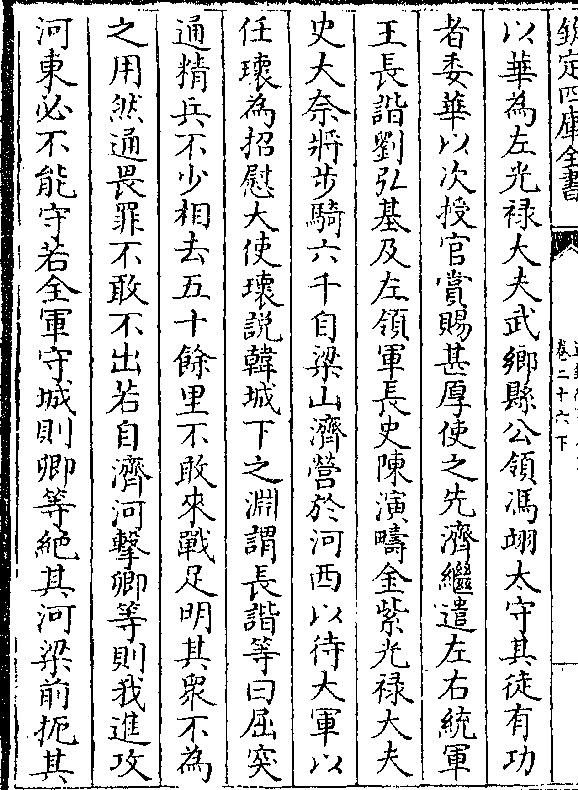 欽定四庫全書
卷二十六下
以華為左光禄大夫武鄉縣公領馮翊太守其徒有功
者委華以次授官賞賜甚厚使之先濟繼遣左右統軍
王長諧劉弘基及左領軍長史陳演疇金紫光禄大夫
史大奈將步騎六千自梁山濟營於河西以待大軍以
任瓌為招慰大使瓌説韓城下之淵謂長諧等曰屈突
通精兵不少相去五十餘里不敢來戰足明其衆不為
之用然通畏罪不敢不出若自濟河擊卿等則我進攻
河東必不能守若全軍守城則卿等絶其河梁前扼其